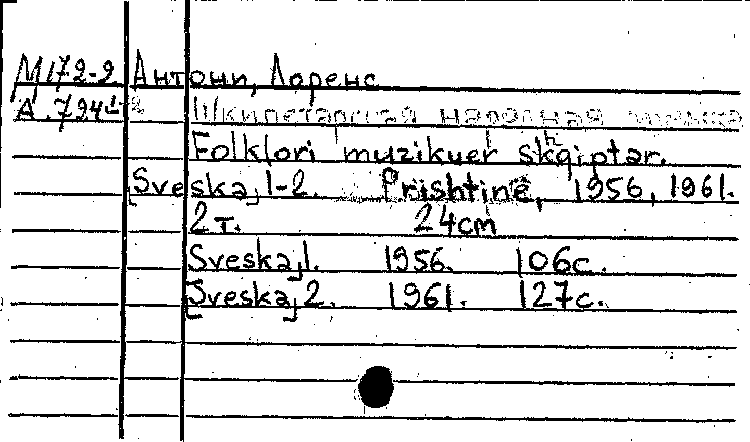 М172-2 Антони, Лоренс
А.724 1-2 Шкипетарская народная музыка
Folklori muzikuer shqiptar.
[Sveska] 1-2. Prishtinë, 1956, 1961.
2т. 24cm
Sveska] 1. 1956. 106с.
[Sveska] 2. 1961. 127с.